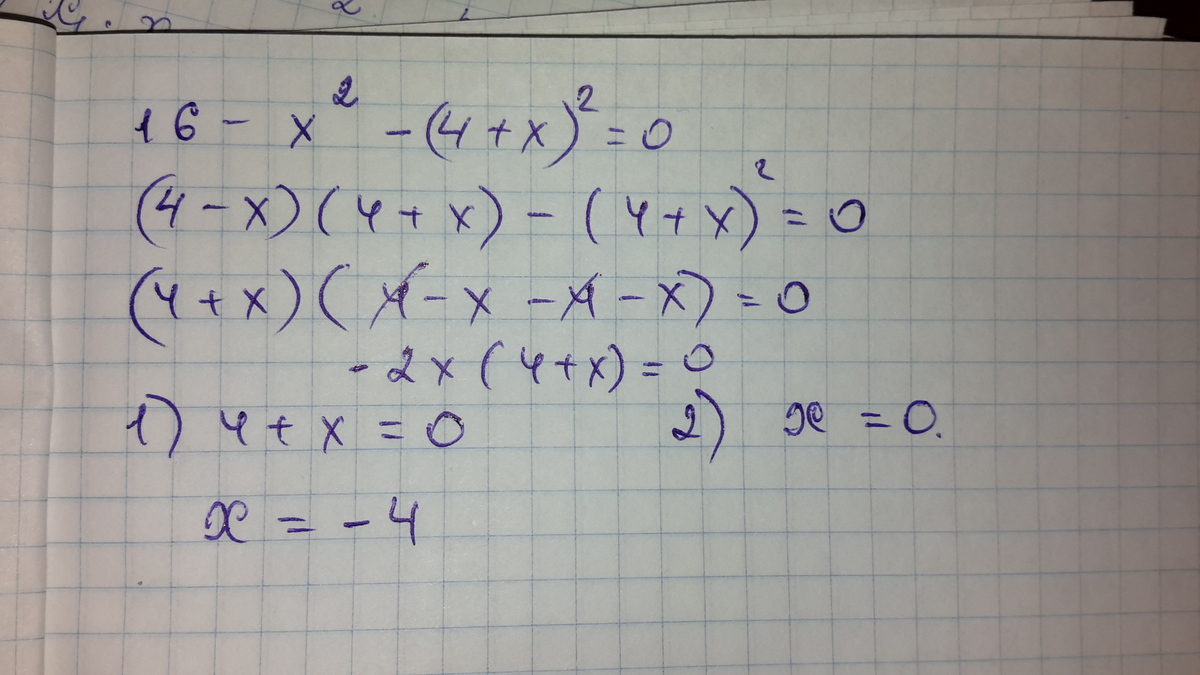 16 - x² - (4 + x)² = 0
(4 - x)(4 + x) - (4 + x)² = 0
(4 + x)(4 - x - 4 - x) = 0
- 2x(4 + x) = 0
1) 4 + x = 0 2) x = 0.
x = - 4